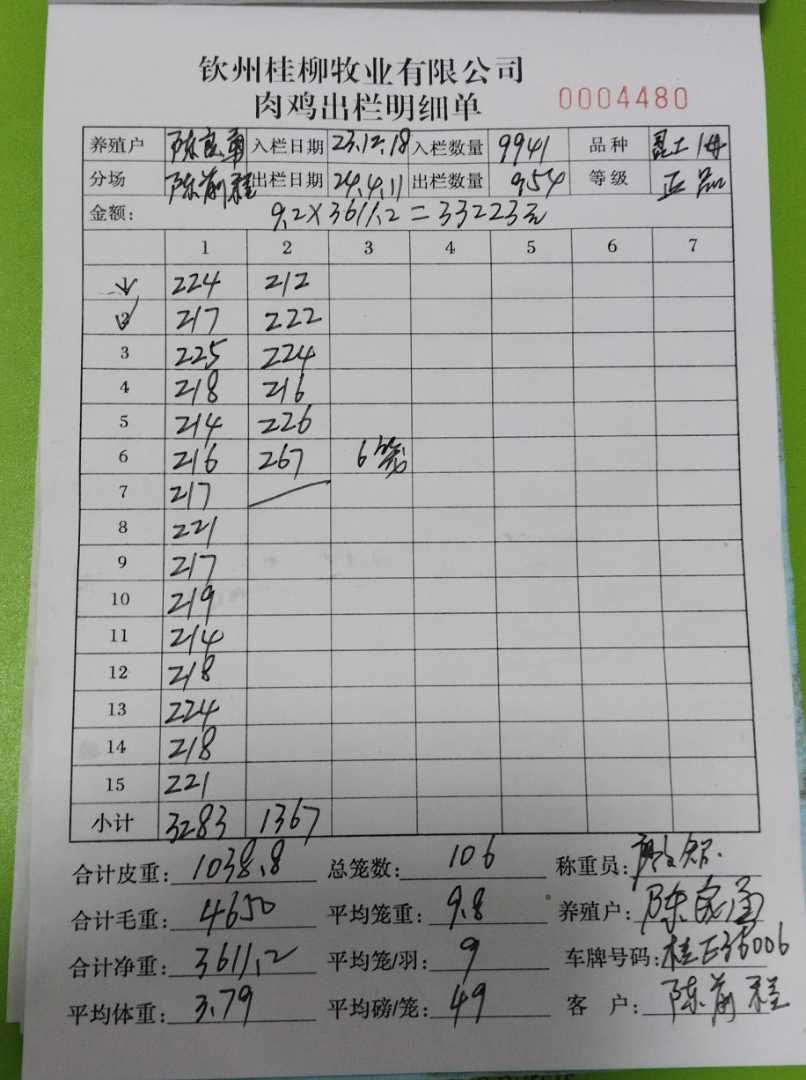 钦州桂柳牧业有限公司
肉鸡出栏明细单 0004480
养殖户 陈良勇 入栏日期 23.12.18 入栏数量 9941 品种 昆土1母
分场 陈前程 出栏日期 24.4.11 出栏数量 954 等级 正品
金额: 9.2×3611.2=33223元
1 2 3 4 5 6 7
1 224 212
2 217 222
3 225 224
4 218 216
5 214 226
6 216 267 6笼
7 217
8 221
9 217
10 219
11 214
12 218
13 224
14 218
15 221
小计 3283 1367
合计皮重: 1038.8 总笼数: 106 称重员:
合计毛重: 4650 平均笼重: 9.8 养殖户: 陈良勇
合计净重: 3611.2 平均笼/羽: 9 车牌号码: 桂E36006
平均体重: 3.79 平均磅/笼: 49 客 户: 陈前程